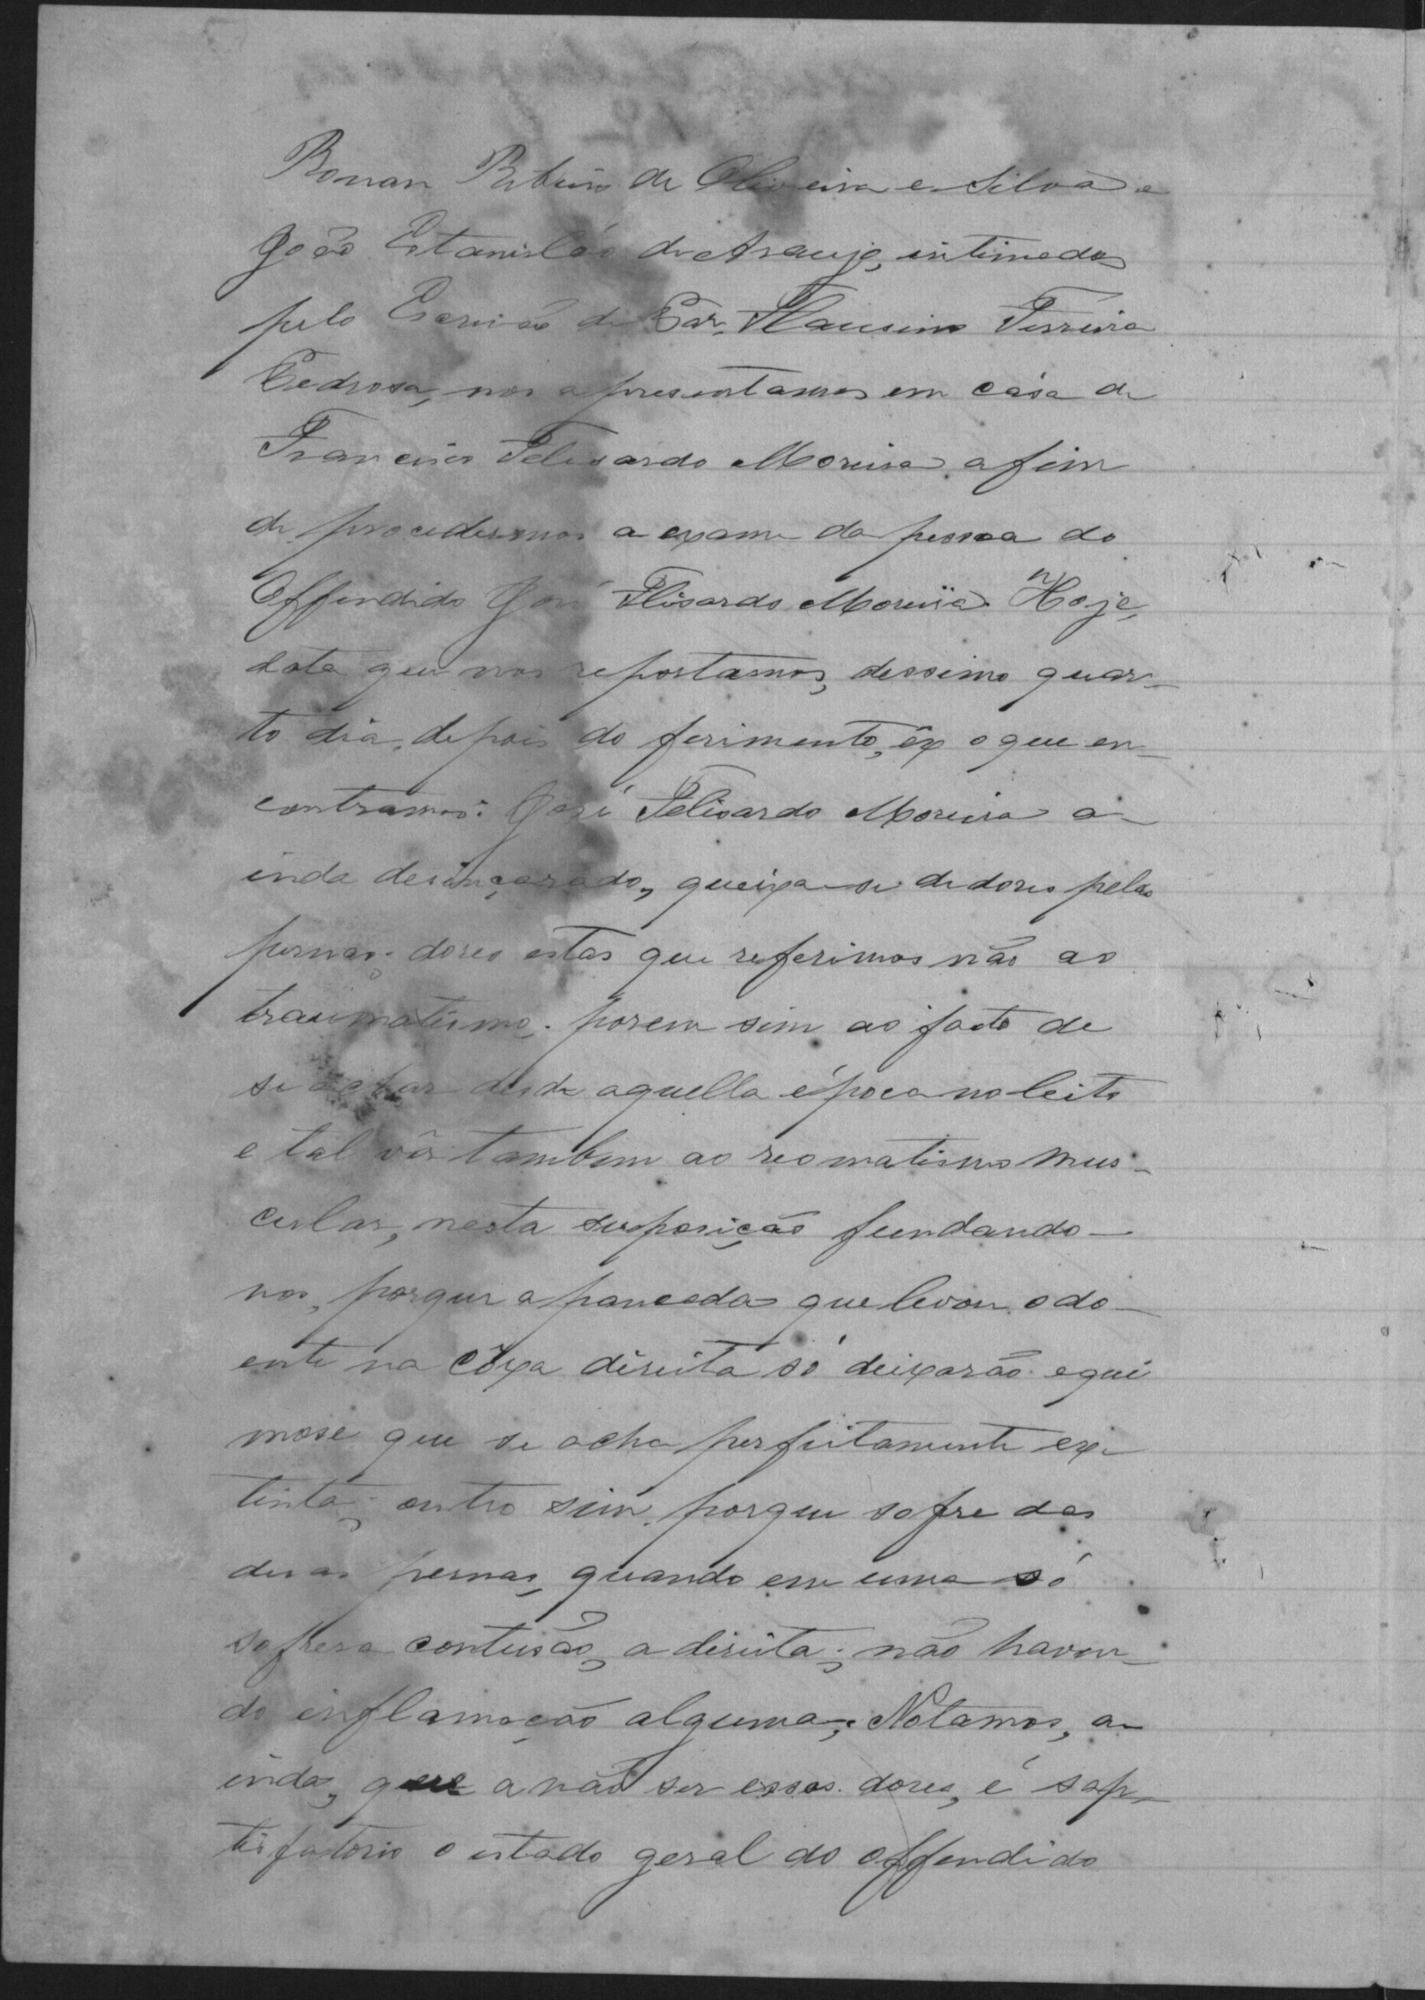 Roman Ribeiro de Oliveira e Silva e
João Estanisláo de Araujo, intimados
pelo Escrivão de Paz, Flausino Ferreira
Pedrosa, nos apresentamos em cása de
Francisco Felisardo Moreira, afim
de procedermos a exame da pessoa do
Offendido José Flisardo Moreira. Hoje,
data que nos reportamos, dessimo quar-
to dia, depois do ferimento, êx o que en-
contramos: José Felisardo Moreira a-
inda desinçarado, queixa-se de dores pelas
pernas; dores estas que referimos não ao
traumatismo; porem sim ao facto de
se achar desde aquella época no leito
e tal vês tambem ao reomatismo mus-
cular, nesta suposição fundando-
nos, porque a pancada que levou o do-
ente na côxa direita só deixarão equi
mose que se acha perfeitamente ex-
tinta; outro sim, porque sofre das
duas pernas, quando em uma só
sofrera contusão, a direita; não haven-
do inflamação alguma; Notamos, a-
inda, que a não ser essas dores, é sap-
tisfatorio o estado geral do offendido